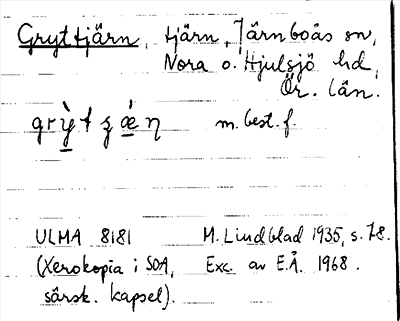 Gryttjärn, tjärn, Järnboås sn,
Nora o. Hjulsjö hd,
Ör. län.
m. best. f.
ULMA 8181 M. Lindblad 1935, s. 78.
(Xerokopia i SOA, Exc. av E.Å. 1968.
särsk. kapsel).